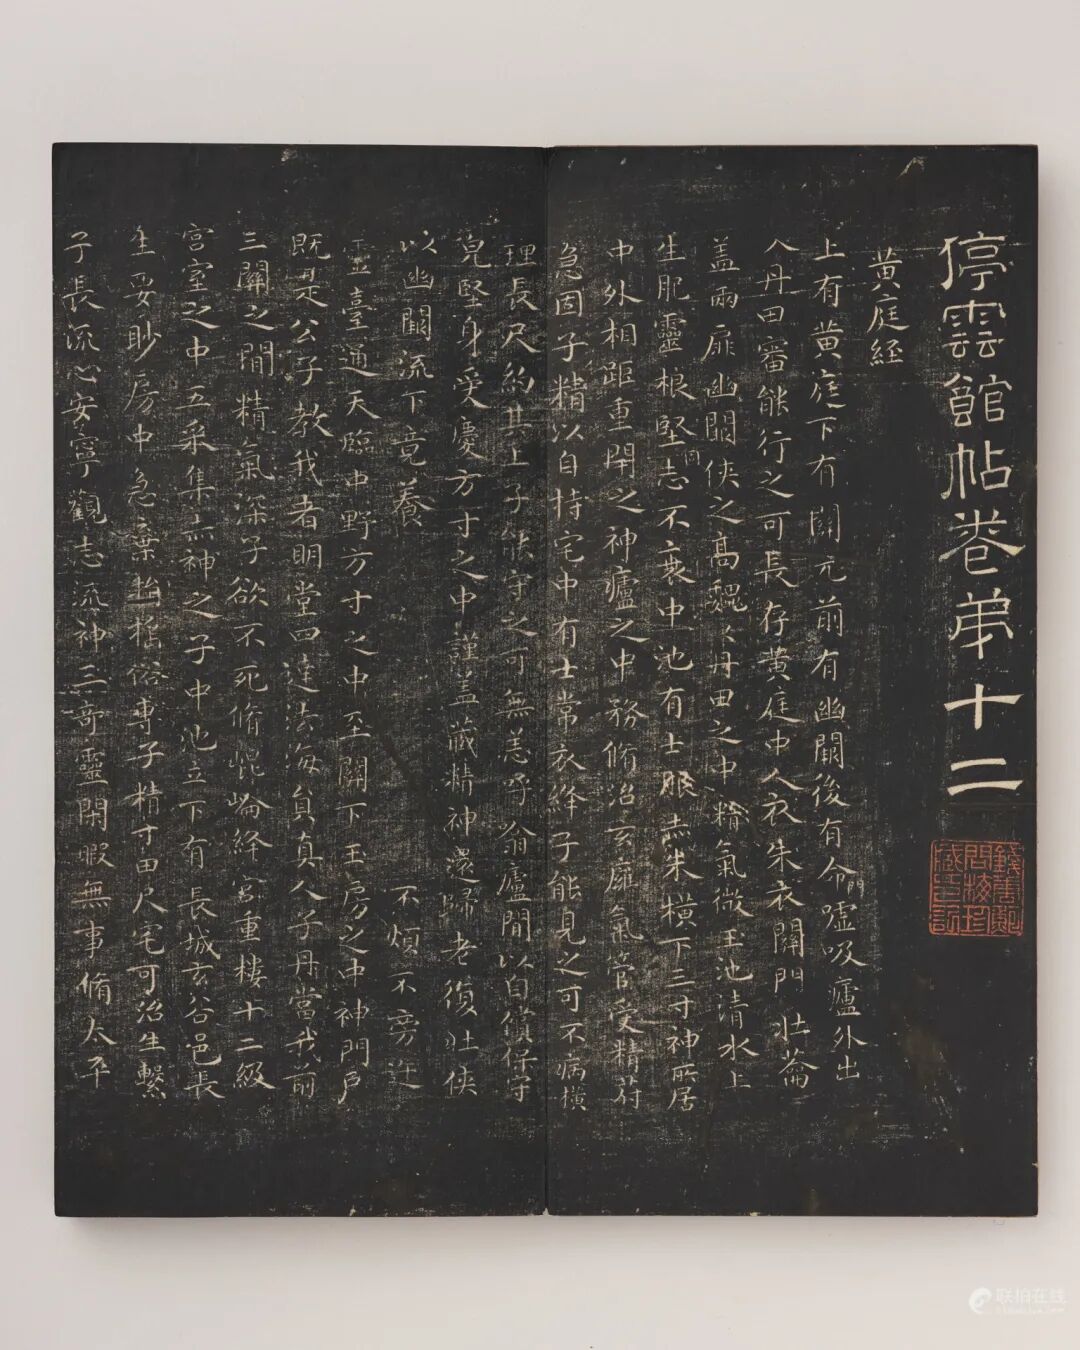 停雲館帖卷第十二
黃庭經
上有黃庭下有關元前有幽闕後有命噓吸廬外出
入丹田審能行之可長存黃庭中人衣朱衣關門壯蘥
蓋兩扉幽闕俠之高魏〻丹田之中精氣微玉池清水上
生肥靈根堅志不衰中池有士服赤朱橫下三寸神所居
中外相距重閇之神廬之中務脩治玄廱氣管受精苻
急固子精以自持宅中有士常衣絳子能見之可不病橫
理長尺約其上子能守之可無恙呼翕廬間以自償保守
皃堅身受慶方寸之中謹蓋藏精神還歸老復壯俠
以幽闕流下竟養
不煩不旁迕
玉臺通天臨中野方寸之中至關下玉房之中神門戶
既是公子教我者明堂四達法海員真人子丹當我前
三關之閒精氣深子欲不死脩崐崘絳宮重樓十二級
宮室之中五采集赤神之子中池立下有長城玄谷邑長
生要眇房中急棄捐俗專子精寸田尺宅可治生繫
子長流心安寧觀志流神三奇靈閑暇無事脩太平